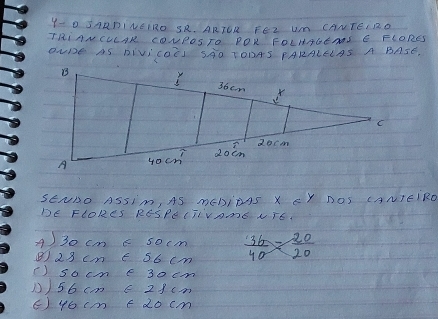 4- O JARDINEIRO SR. ARTUR FEZ UM CANTEIRO
TRIANGULAR COMPOSTO POR FOLHAGENS E FLORES
ONDE AS DIVIÇOES SÃO TODAS PARALELAS A BASE.
B
Y
36cm
X
C
A
40cm
20cm
20cm
SENDO ASSIM, AS MEDIDAS X E Y DOS CANTEIRO
DE FLORES RESPECTIVAMENTE.
A) 30 cm E 50 cm
B) 28 cm E 56 cm
C) 50 cm E 30 cm
D) 56 cm E 28 cm
E) 40 cm E 20 cm
36 = 20
40 20